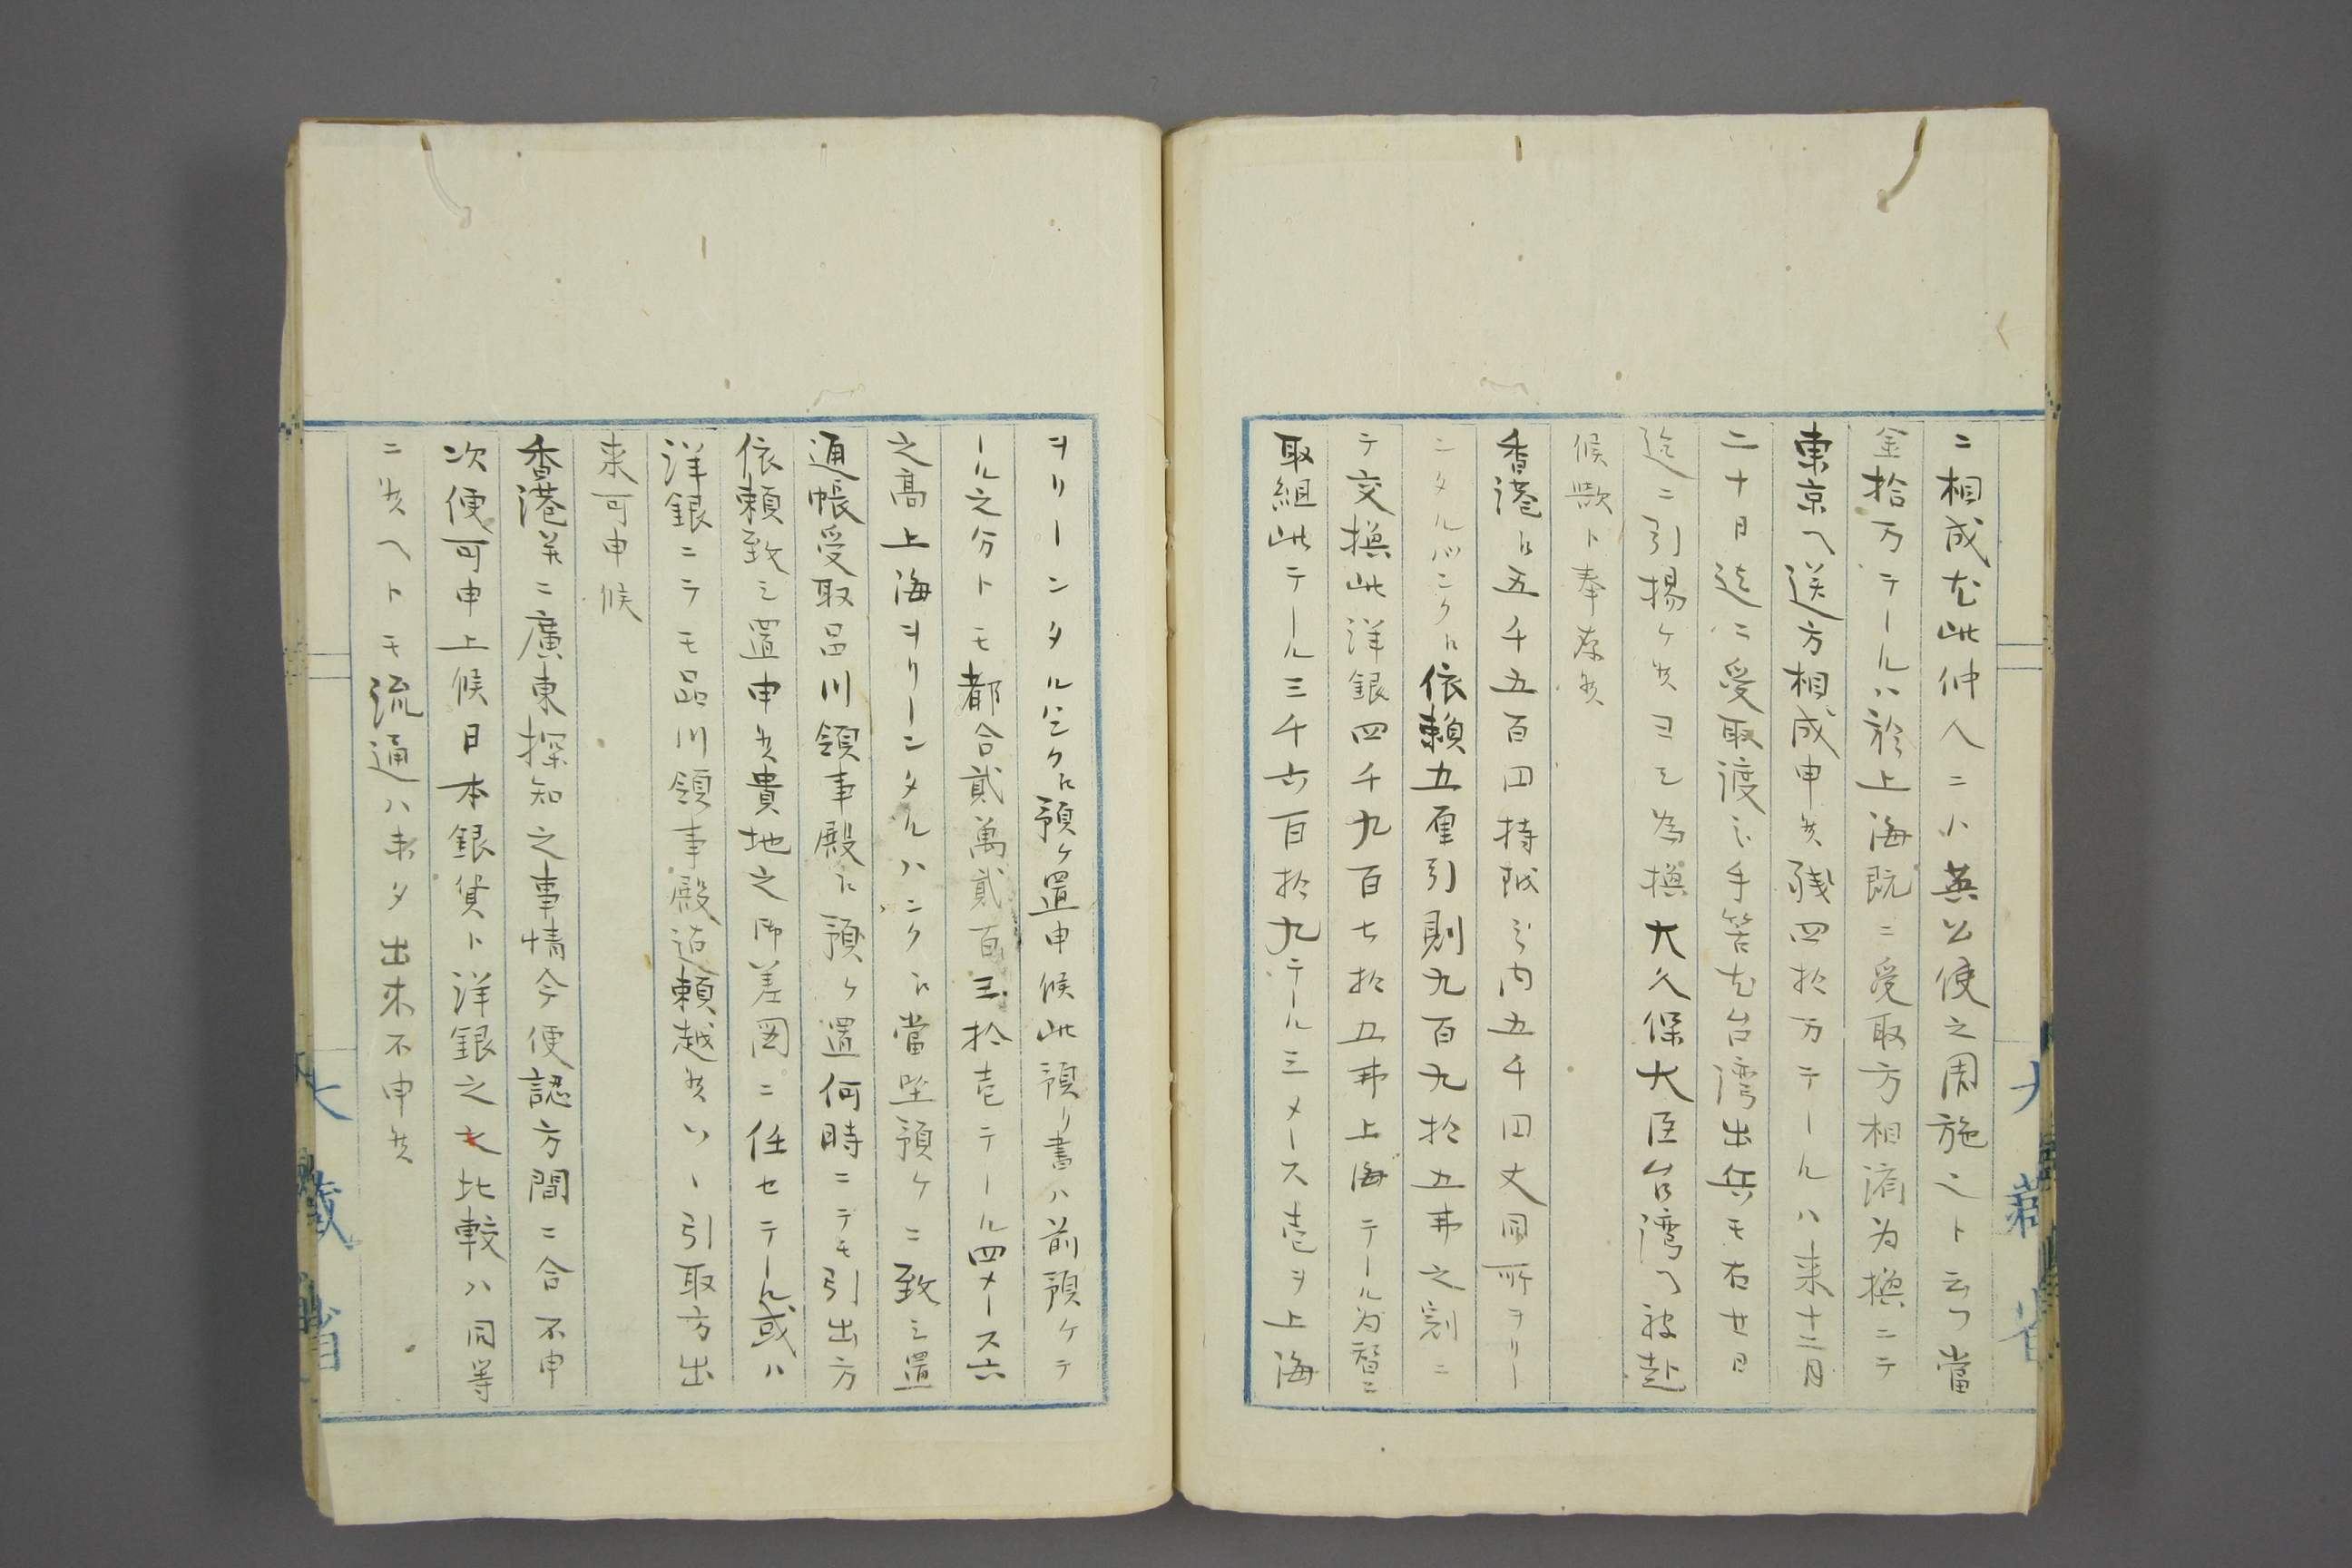 ニ相成尤此仲人ニハ英公使之周施シト云フ當
金拾万テールハ於上海既ニ受取方相済為換ニテ
東京ヘ送方相成申候残四拾万テールハ来十二月
二十日迄ニ受取渡之手筈尤台湾出兵モ右廿日
迄ニ引揚ケ候ヨシ為換大久保大臣台湾ヘ被赴
候歟ト奉存候
香港ニ五千五百円持越シ内五千円丈同所ヲリー
ンタルバンクニ依頼五厘引則九百九拾五弗之割ニ
テ交換此洋銀四千九百七拾五弗上海テール為替ニ
取組此テール三千六百拾九テール三メース壱ヲ上海
ヲリーンタルバンクニ預ケ置申候此預リ書ハ前預ケテ
ール之分トモ都合貳萬貳百三拾壱テール四メース六
之高上海ヲリーンタルハンクニ當坐預ケニ致シ置
通帳受取品川領事殿ニ預ケ置何時ニテモ引出方
依頼致シ置申候貴地之御差図ニ任セテール或ハ
洋銀ニテモ品川領事殿迄頼越候ハヽ引取方出
来可申候
香港并ニ廣東探知之事情今便認方間ニ合不申
次便可申上候日本銀貨ト洋銀之比較ハ同等
ニ候ヘトモ流通ハ未タ出来不申候
大藏省
大藏省